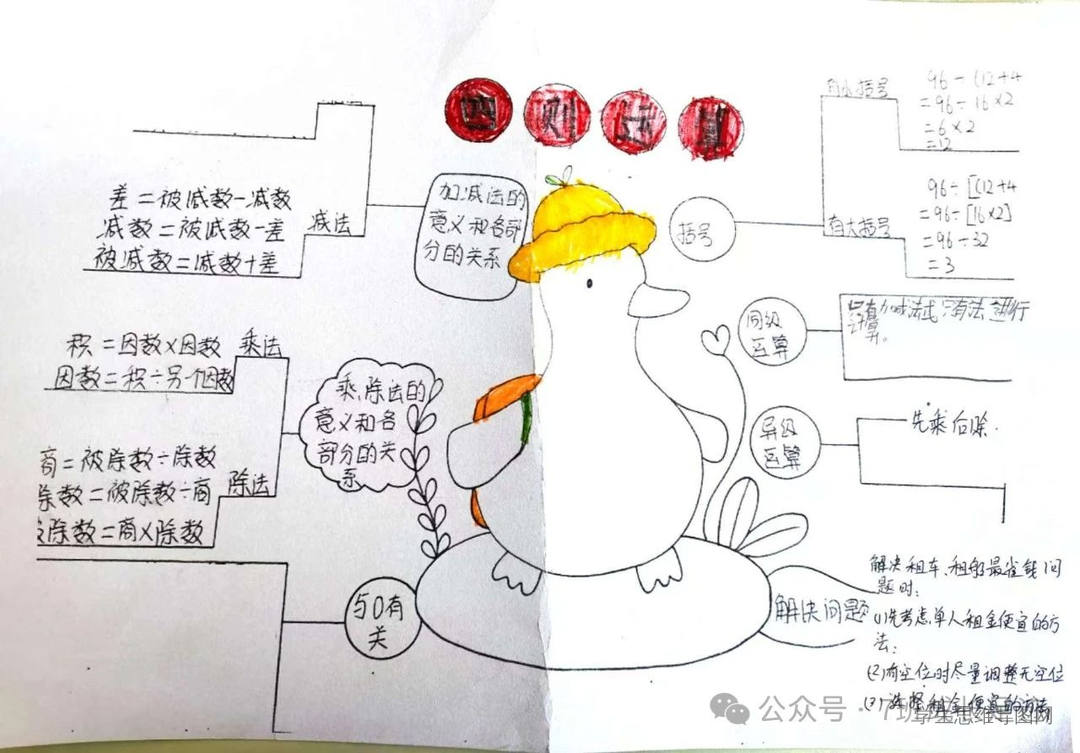 四则运算
加、减法的
意义和各部
分的关系
差=被减数-减数
减数=被减数-差
被减数=减数+差
减法
乘、除法的
意义和各
部分的关
系
积=因数×因数
因数=积÷另一个因数
乘法
商=被除数÷除数
除数=被除数÷商
被除数=商×除数
除法
与0有
关
括号
有小括号
96÷(12+4
=96÷16×2
=6×2
=12
有大括号
96÷[(12+4
=96÷[16×2]
=96÷32
=3
同级
运算
只有加减法或只有法进行
计算。
异级
运算
先乘后除.
解决问题
解决租车、租船最省钱问
题时:
(1)先考虑单人租金便宜的方
法:
(2)有空位时尽量调整无空位
(3)选择租金便宜的方法
公众号·
学生思维导图网